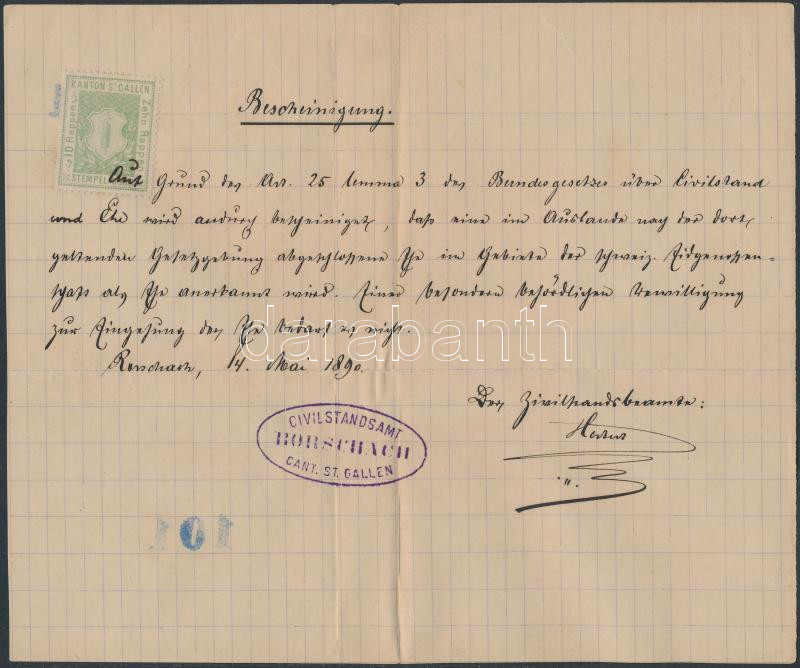 Bescheinigung.
KANTON ST GALLEN
10 Rappen
Zehn Rappen
STEMPEL
Auf Grund des Art. 25 lemma 3 des Bundesgesetzes über Civilstand
und Ehe wird andurch bescheiniget, daß eine im Auslande nach der dort
geltenden Gesetzgebung abgeschlossene Ehe im Gebiete der schweiz. Eidgenossen=
schaft als Ehe anerkannt wird. Einer besondern behördlichen Bewilligung
zur Eingehung der Ehe bedarf es nicht.
Rorschach, 4. Mai 1890.
Der Zivilstandsbeamte:
CIVILSTANDSAMT
RORSCHACH
CANT. ST. GALLEN
101
darabanth